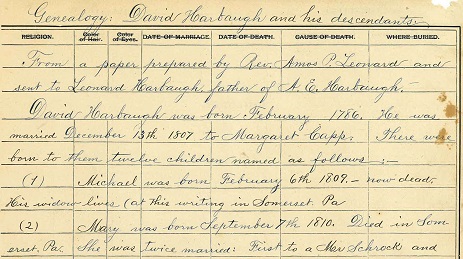 Genealogy: David Harbaugh and his descendants.
RELIGION. Color of Hair. Color of Eyes. DATE OF MARRIAGE DATE OF DEATH. CAUSE OF DEATH. WHERE BURIED.
From a paper prepared by Rev. Amos P. Leonard and
sent to Leonard Harbaugh father of A. E. Harbaugh.
David Harbaugh was born February 1786. He was
married December 13th 1807 to Margaret Capp. There were
born to them twelve children named as follows :-
(1) Michael was born February 6th 1809. - now dead.
His widow lives (at this writing in Somerset. Pa
(2) Mary was born September 7th 1810. Died in Som-
erset. Pa. She was twice married: First to a Mr Schrock and